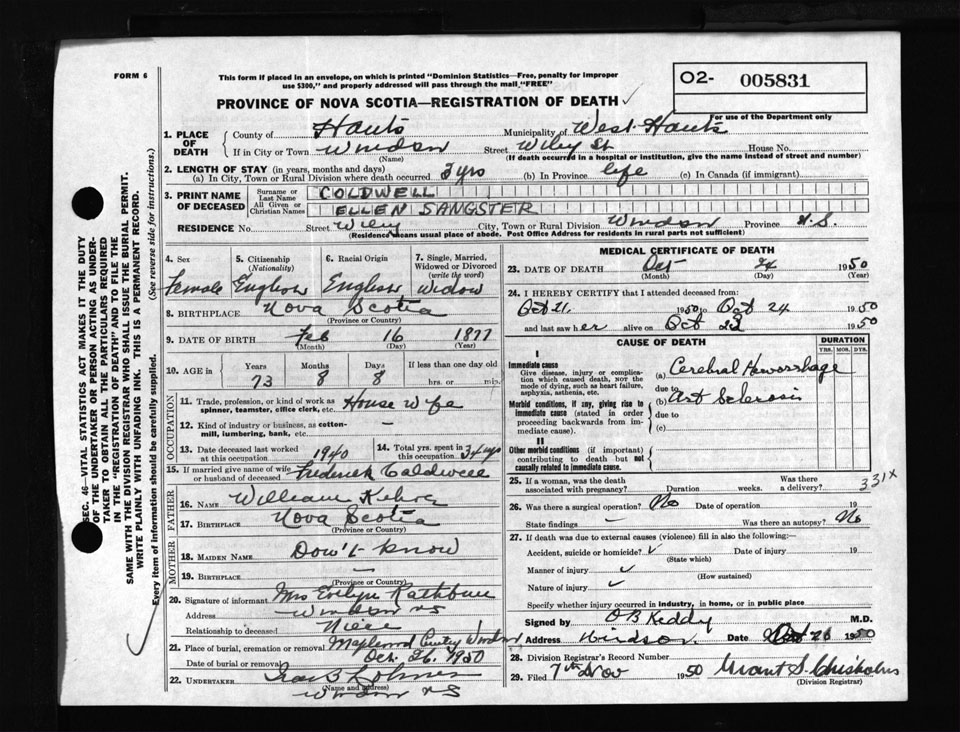 FORM 6
This form if placed in an envelope, on which is printed "Dominion Statistics—Free, penalty for improper
use $300," and properly addressed will pass through the mail "FREE"
O2- 005831
PROVINCE OF NOVA SCOTIA—REGISTRATION OF DEATH ✓
For use of the Department only
1. PLACE OF DEATH
County of Hants Municipality of West Hants
If in City or Town Windsor Street Wiley St House No.
(Name) (If death occurred in a hospital or institution, give the name instead of street and number)
2. LENGTH OF STAY (in years, months and days)
(a) In City, Town or Rural Division where death occurred yrs (b) In Province life (c) In Canada (if immigrant)
3. PRINT NAME OF DECEASED
Surname or Last Name COLDWELL
All Given or Christian Names ELLEN SANGSTER
RESIDENCE No. Street Wiley City, Town or Rural Division Windsor Province N.S.
(Residence means usual place of abode. Post Office Address for residents in rural parts not sufficient)
4. Sex Female
5. Citizenship (Nationality) English
6. Racial Origin English
7. Single, Married, Widowed or Divorced (write the word) Widow
8. BIRTHPLACE Nova Scotia
(Province or Country)
9. DATE OF BIRTH Feb 16 1877
(Month) (Day) (Year)
10. AGE in Years Months Days If less than one day old
73 8 8 hrs. or min.
OCCUPATION
11. Trade, profession, or kind of work as spinner, teamster, office clerk, etc. House Wife
12. Kind of industry or business, as cotton-mill, lumbering, bank, etc. —
13. Date deceased last worked at this occupation 1940
14. Total yrs. spent in this occupation 34 yrs
15. If married give name of wife or husband of deceased Frederick Coldwell
FATHER
16. NAME William
17. BIRTHPLACE Nova Scotia
(Province or Country)
MOTHER
18. MAIDEN NAME Don't know
19. BIRTHPLACE —
(Province or Country)
20. Signature of informant Mrs Evelyn Rathburn
Address Windsor NS
Relationship to deceased Niece
21. Place of burial, cremation or removal Maplewood Windsor
Date of burial or removal Oct. 26, 1950
22. UNDERTAKER
(Name and address)
Windsor NS
MEDICAL CERTIFICATE OF DEATH
23. DATE OF DEATH Oct 24 1950
(Month) (Day) (Year)
24. I HEREBY CERTIFY that I attended deceased from:
Oct 21. 1950 to Oct 24 1950
and last saw her alive on Oct 1950
CAUSE OF DEATH
DURATION
YRS. MOS. DYS.
I
Immediate cause
Give disease, injury or complication which caused death, NOT the mode of dying, such as heart failure, asphyxia, asthenia, etc.
(a) Cerebral Hemorrhage
due to
Morbid conditions, if any, giving rise to immediate cause (stated in order proceeding backwards from immediate cause).
(b) Art Sclerosis
due to
(c)
II
Other morbid conditions (if important) contributing to death but not causally related to immediate cause.
25. If a woman, was the death associated with pregnancy? Duration weeks. Was there a delivery? 331X
26. Was there a surgical operation? No Date of operation 19
State findings — Was there an autopsy? No
27. If death was due to external causes (violence) fill in also the following:—
Accident, suicide or homicide? ✓ Date of injury 19
(State which)
Manner of injury ✓
(How sustained)
Nature of injury ✓
Specify whether injury occurred in industry, in home, or in public place
Signed by O B Keddy M.D.
Address Windsor. Date Oct 26 1950
28. Division Registrar's Record Number
29. Filed 7th Nov 1950 Grant S. Chisholm
(Division Registrar)
SEC. 46—VITAL STATISTICS ACT MAKES IT THE DUTY
OF THE UNDERTAKER OR PERSON ACTING AS UNDER-
TAKER TO OBTAIN ALL THE PARTICULARS REQUIRED
IN THE "REGISTRATION OF DEATH" AND TO FILE THE
SAME WITH THE DIVISION REGISTRAR WHO SHALL ISSUE THE BURIAL PERMIT.
WRITE PLAINLY WITH UNFADING INK. THIS IS A PERMANENT RECORD.
Every item of information should be carefully supplied. (See reverse side for instructions.)